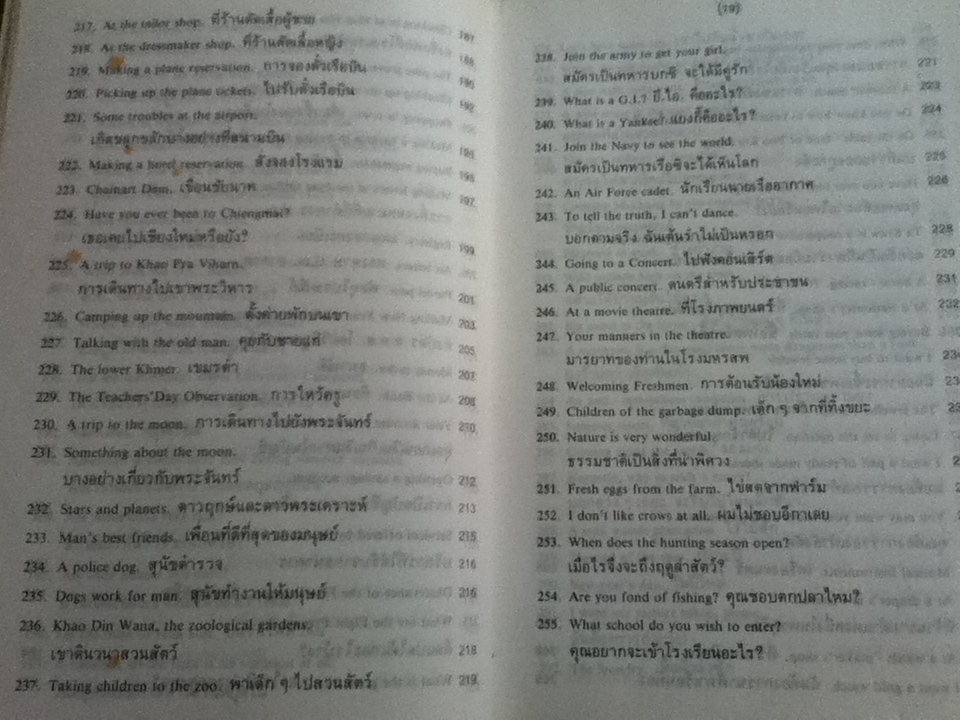 217. At the tailor shop. ที่ร้านตัดเสื้อผู้ชาย 187
218. At the dressmaker shop. ที่ร้านตัดเสื้อหญิง
219. Making a plane reservation. การจองตั๋วเรือบิน
220. Picking up the plane tickets. ไปรับตั๋วเรือบิน
221. Some troubles at the airport.
เกิดขลุกขลักบางอย่างที่สนามบิน
222. Making a hotel reservation. สั่งจองโรงแรม
223. Chainart Dam. เขื่อนชัยนาท 197
224. Have you ever been to Chiengmai?
เธอเคยไปเชียงใหม่หรือยัง? 199
225. A trip to Khao Pra Viharn.
การเดินทางไปเขาพระวิหาร 201
226. Camping up the mountain. ตั้งค่ายพักบนเขา 203
227. Talking with the old man. คุยกับชายแก่ 205
228. The lower Khmer. เขมรต่ำ 207
229. The Teachers' Day Observation. การไหว้ครู 208
230. A trip to the moon. การเดินทางไปยังพระจันทร์ 210
231. Something about the moon.
บางอย่างเกี่ยวกับพระจันทร์ 212
232. Stars and planets. ดาวฤกษ์และดาวพระเคราะห์ 213
233. Man's best friends. เพื่อนที่ดีที่สุดของมนุษย์ 215
234. A police dog. สุนัขตำรวจ 216
235. Dogs work for man. สุนัขทำงานให้มนุษย์ 216
236. Khao Din Wana, the zoological gardens.
เขาดินวนาสวนสัตว์ 218
237. Taking children to the zoo. พาเด็ก ๆ ไปสวนสัตว์ 219
(19)
238. Join the army to get your girl.
สมัครเป็นทหารบกซิ จะได้มีคู่รัก 221
239. What is a G.I.? ยี.ไอ. คืออะไร? 223
240. What is a Yankee? แยงกี้คืออะไร? 224
241. Join the Navy to see the world.
สมัครเป็นทหารเรือซิจะได้เห็นโลก 225
242. An Air Force cadet. นักเรียนนายเรืออากาศ 226
243. To tell the truth, I can't dance.
บอกตามจริง ฉันเต้นรำไม่เป็นหรอก 228
244. Going to a Concert. ไปฟังคอนเสิร์ต 229
245. A public concert. ดนตรีสำหรับประชาชน 231
246. At a movie theatre. ที่โรงภาพยนตร์ 232
247. Your manners in the theatre.
มารยาทของท่านในโรงมหรสพ
248. Welcoming Freshmen. การต้อนรับน้องใหม่
249. Children of the garbage dump. เด็ก ๆ จากที่ทิ้งขยะ
250. Nature is very wonderful.
ธรรมชาติเป็นสิ่งที่น่าพิศวง
251. Fresh eggs from the farm. ไข่สดจากฟาร์ม
252. I don't like crows at all. ผมไม่ชอบอีกาเลย
253. When does the hunting season open?
เมื่อไรจึงจะถึงฤดูล่าสัตว์?
254. Are you fond of fishing? คุณชอบตกปลาไหม?
255. What school do you wish to enter?
คุณอยากจะเข้าโรงเรียนอะไร?